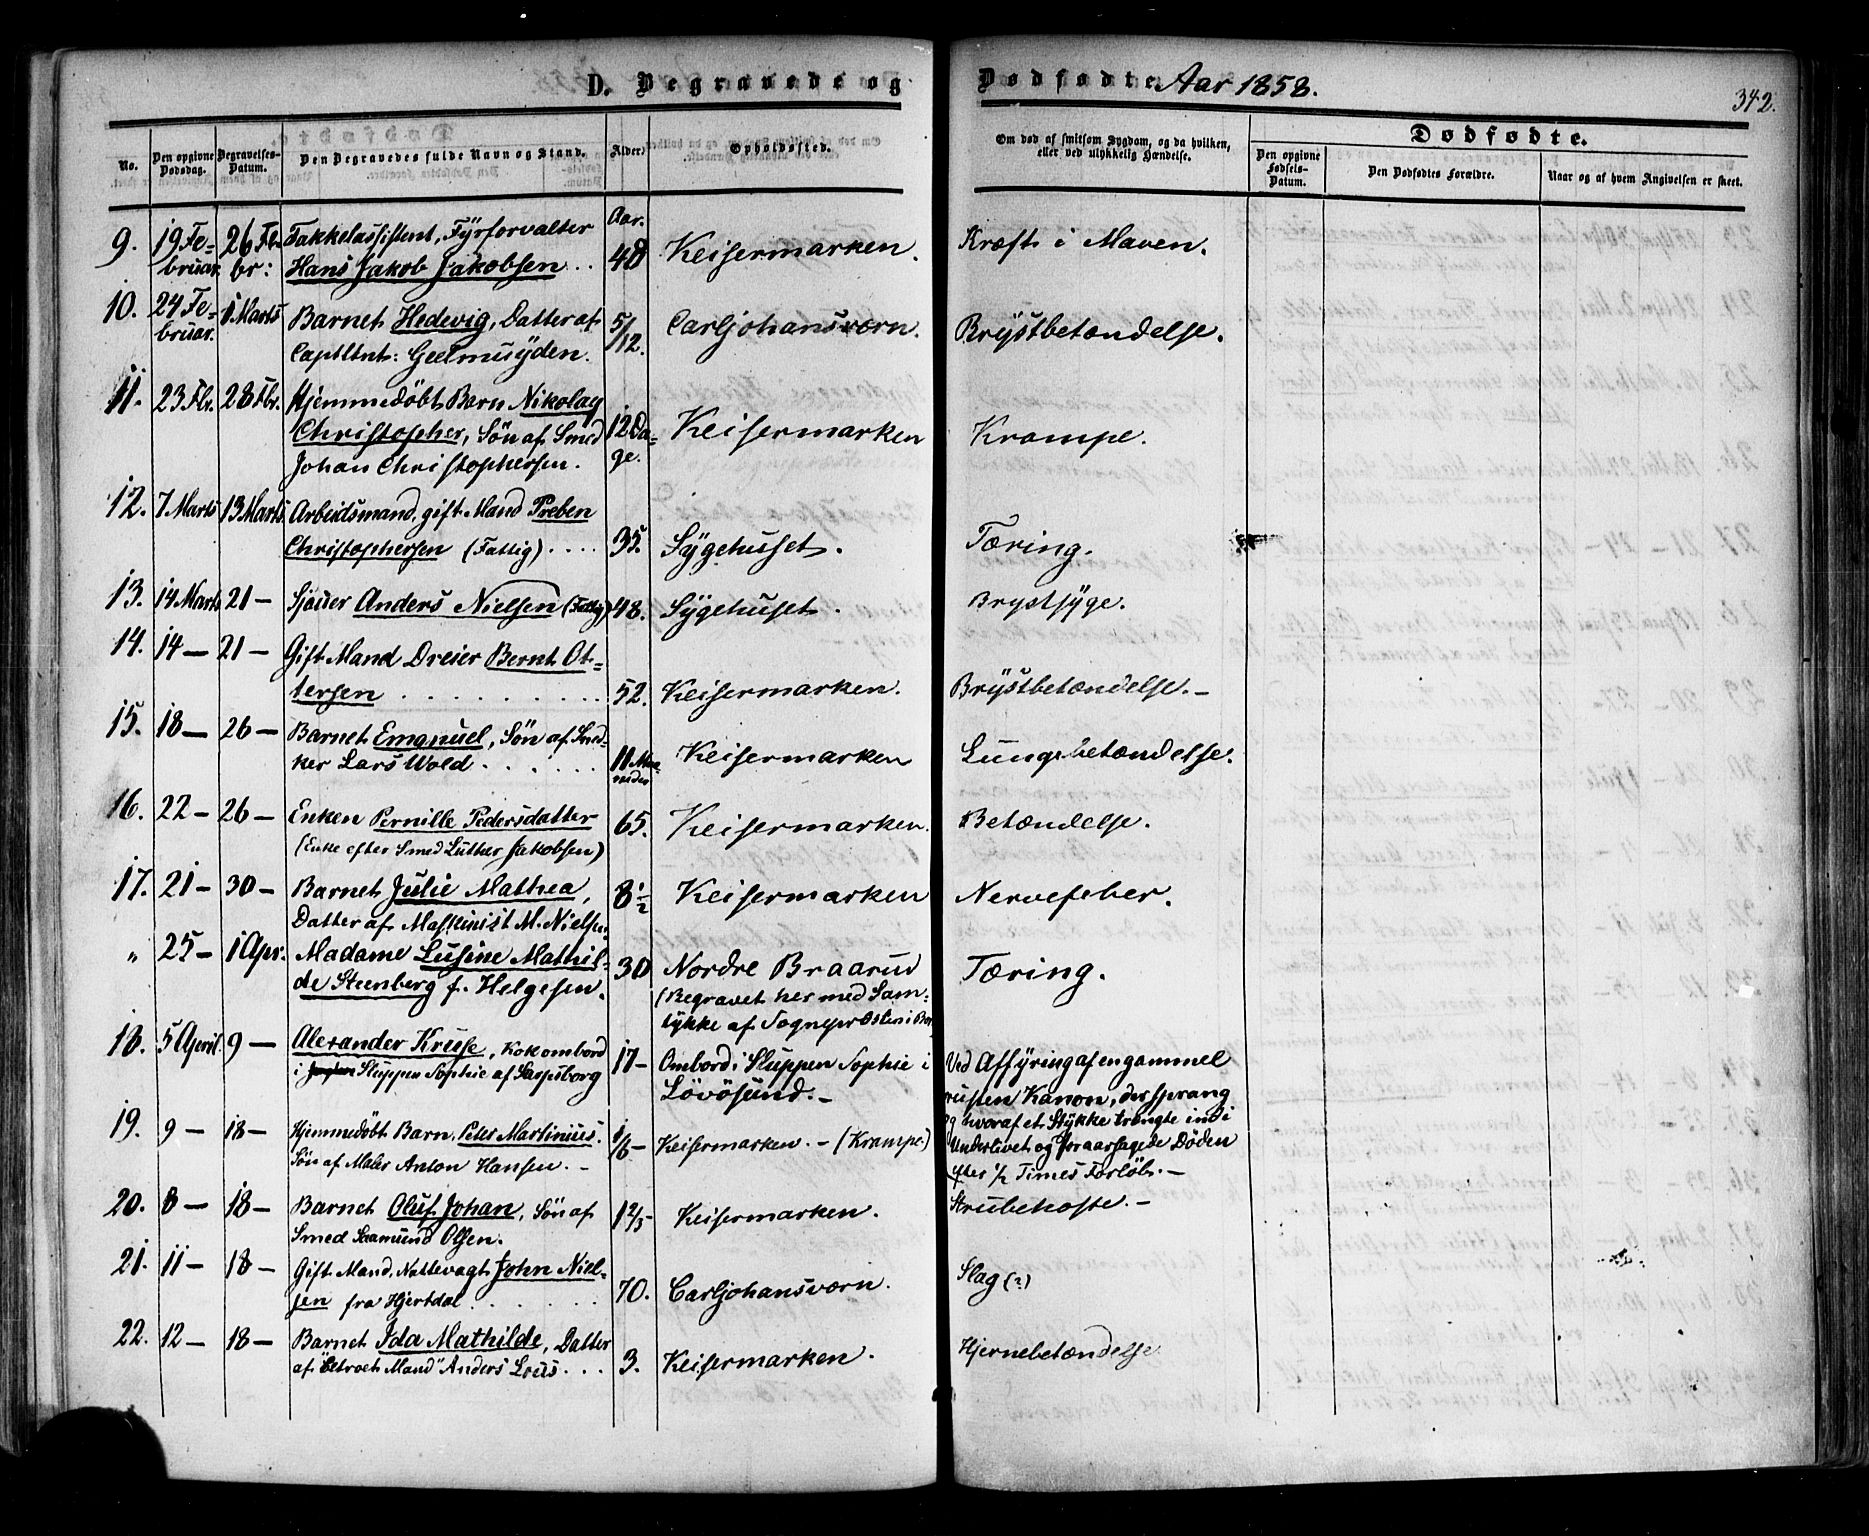 D. Begravede og Dødfødte Aar 1858.
342.
No.
Den opgivne Dødsdag.
Begravelses-Datum.
Den Begravedes fulde Navn og Stand.
Alder.
Opholdssted.
Om død af smitsom Sygdom, og da hvilken, eller ved ulykkelig Hændelse.
Dødfødte.
Den opgivne Fødsels-Datum.
Den Dødfødtes Forældre.
Naar og af hvem Angivelsen er skeet.
Aar.
9. 19 Fe- 26 Fe- Takkelassistent, Fyrforvalter
bruar. br: Hans Jakob Jakobsen .. 48 Keisermarken. Kræft i Maven.
10. 24 Fe- 1 Marts Barnet Hedevig, Datter af 5/12. Carljohansværn. Brystbetændelse.
bruar. Captltnt: Geelmuyden.
11. 23 Fbr. 28 Fbr. Hjemmedøbt Barn Nikolay
Christopher, Søn af Smed 12 Da- Keisermarken Krampe.
Johan Christophersen. ge.
12. 7 Marts 13 Marts Arbeidsmand, gift Mand Preben
Christophersen (Fattig) .... 35. Sygehusset. Tæring.
13. 14 Marts 21 — Sjouer Anders Nielsen (Fattig) 48. Sygehuset. Brystsyge.
14. 14 — 21 — Gift Mand Dreier Bernt Ot-
tersen . . . . . . . 52. Keisermarken. Brystbetændelse. —
15. 18 — 26 — Barnet Emanuel, Søn af Sned-
ker Lars Wold . . . . . 11 Maa- Keisermarken Lungebetændelse.
neder
16. 22 — 26 — Enken Pernille Pedersdatter 65. Keisermarken. Betændelse.
(Enke efter Smed Luther Jakobsen)
17. 21 — 30 — Barnet Julie Mathea, 8 1/2 Keisermarken Nervefeber.
Datter af Maskinist M. Nielsen.
" 25 — 1 Apr. Madame Lusine Mathil- 30 Nordre Braarud Tæring.
de Steenberg f. Helgesen. (Begravet her med Sam-
tykke af Sognepr Østen i Bor
18. 5 April. 9 — Alexander Kruse, Kok ombord 17 — Ombord i Sluppen Sophie i Ved Affyring af en gammel
i Sluppen Sophie af Sarpsborg Lövösund. — rusten Kanon, der sprang
og hvoraf et Stykke trængte ind i
Underlivet og foraarsagede Døden
efter 1/2 Times Forløb. —
19. 9 — 18 — Hjemmedøbt Barn, Peter Martinius. 1/6 — Keisermarken. — (Krampe.)
Søn af Maler Anton Hansen. —
20. 8 — 18 — Barnet Oluf Johan, Søn af 1 2/3 — Keisermarken. Strubehoste. —
Smed Saamund Olsen.
21. 11 — 18 — Gift Mand, Nattevagt John Niel-
sen fra Hjertdal . . . . . . 70. Carljohansværn. Slag (?)
22. 12 — 18 — Barnet Ida Mathilde, Datter
af Mand Anders Loeis . . . 3. Keisermarken. Hjernebetændelse